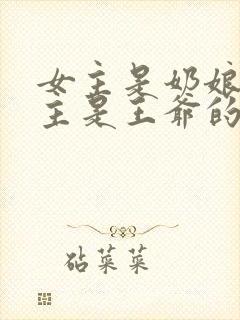 女主是奶娘
主是王爷的
砧菜菜